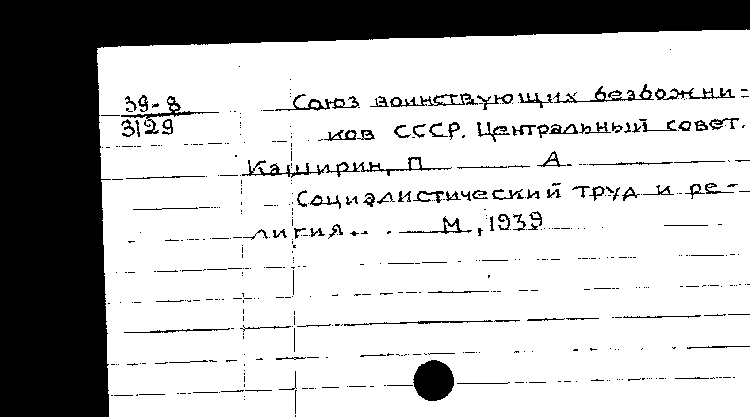 39-8
3129
Союз воинствующих безбожни=
ков СССР. Центральный совет.
Каширин, П А
Социалистический труд и ре-
лигия... М, 1939